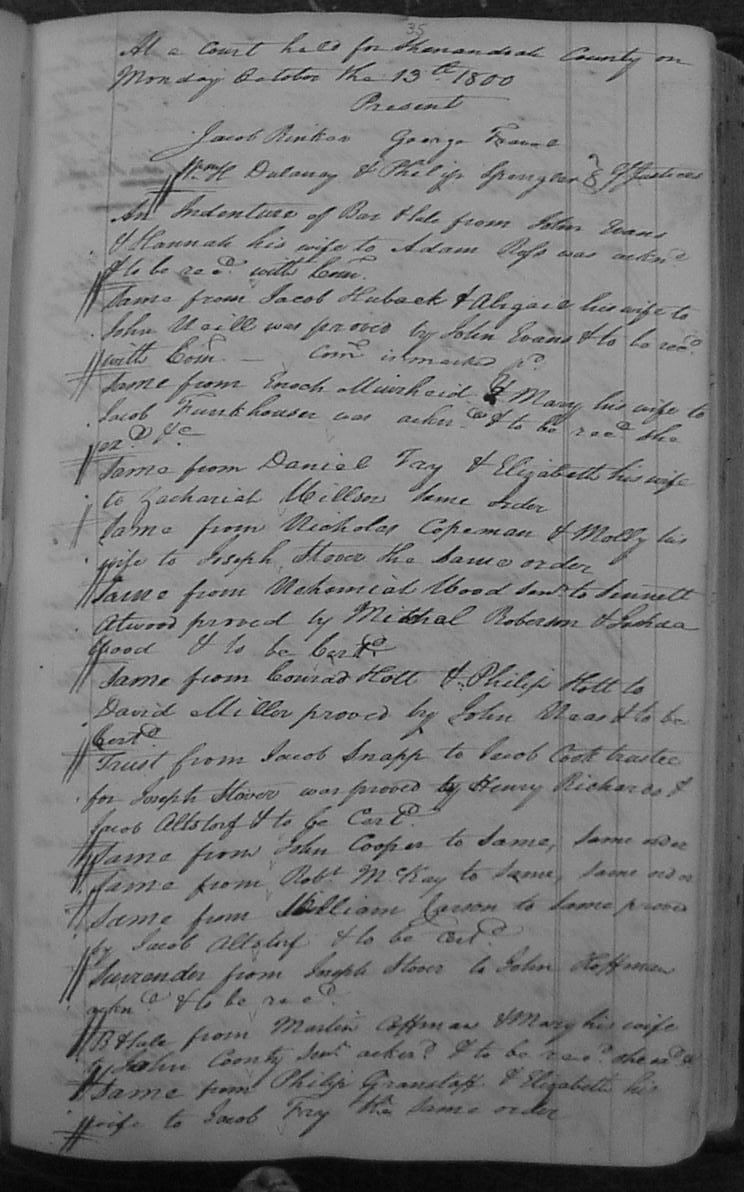 35
At a Court held for Shenandoah County on
Monday October the 13th 1800
Present
Jacob Rinker George
Wm H Dulaney & Philip Spengler Justices
An Indenture of Bar & Sale from John Evans
& Hannah his wife to Adam Ross was acknd
& to be recd with Com.
Same from Jacob Huback & Abigail his wife to
John Neill was proved by John Evans & to be recd
with Com. — Com is marked
Same from Enoch Muirheid & Mary his wife to
Jacob Funkhouser was acknd & to be recd she
exd &c
Same from Daniel Fry & Elizabeth his wife
to Zachariah Miller same order
Same from Nicholas Copeman & Molly his
wife to Joseph Stover the Same order
Same from Nehemiah Wood Senr to
Atwood proved by Michal Roberson & Joshua
Wood & to be Certd
Same from Conrad Hott & Philip Hott to
David Miller proved by John Naas & to be
Certd
Trust from Jacob Snapp to Jacob Cook trustee
for Joseph Stover was proved by Henry Richards &
Jacob Altstorf & to be Certd.
Same from John Cooper to Same, Same order
Same from Robt McKay to Same, Same order
Same from William Carson to Same proved
by Jacob Altstorf & to be Certd
Surrender from Joseph Stover to John Hoffman
acknd & to be recd.
B & Sale from Martin Coffman & Mary his wife
to John Coonty Junr acknd & to be recd. she exd &c
Same from Philip Granstaff & Elizabeth his
wife to Jacob Fry the Same order